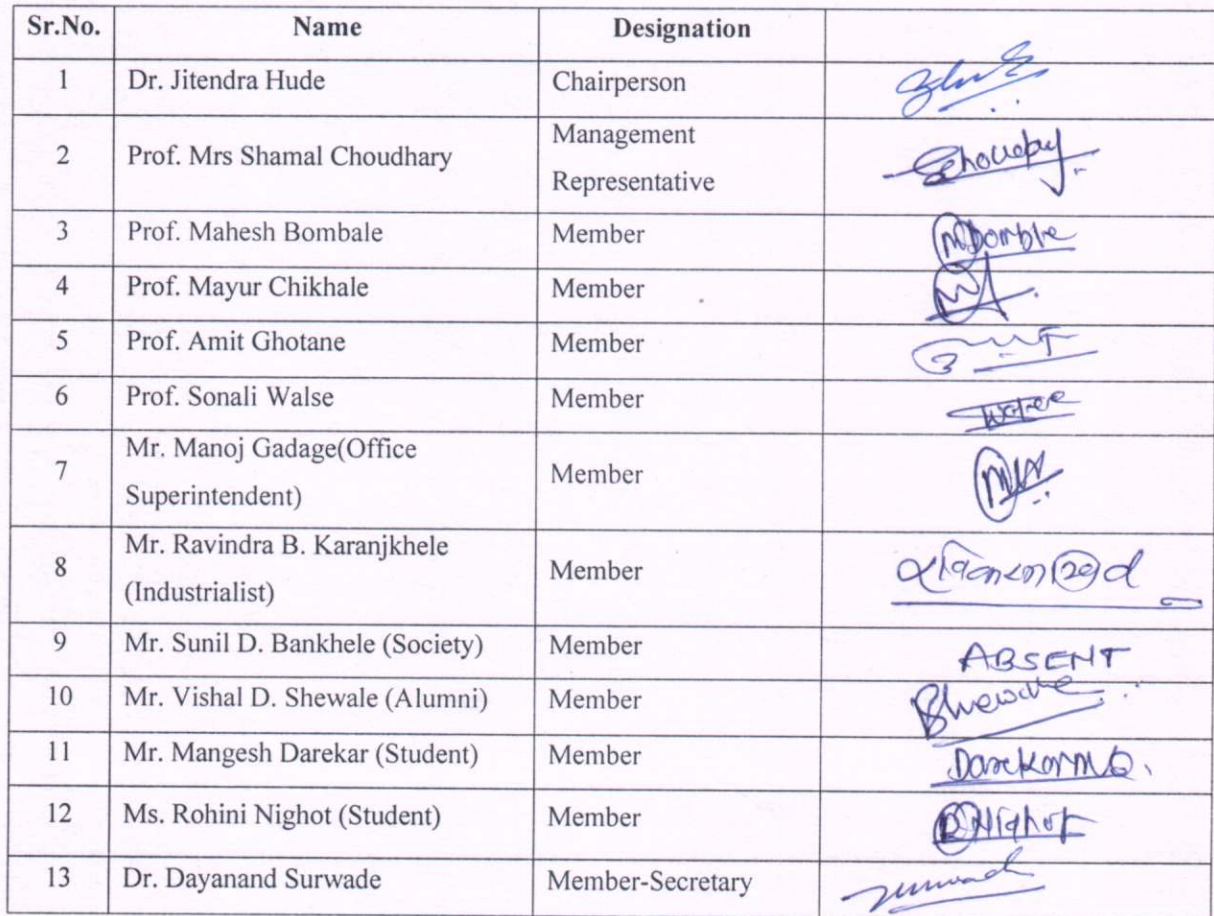 Sr.No. Name Designation
1 Dr. Jitendra Hude Chairperson
2 Prof. Mrs Shamal Choudhary Management
Representative
3 Prof. Mahesh Bombale Member
4 Prof. Mayur Chikhale Member
5 Prof. Amit Ghotane Member
6 Prof. Sonali Walse Member
7 Mr. Manoj Gadage(Office
Superintendent) Member
8 Mr. Ravindra B. Karanjkhele
(Industrialist) Member
9 Mr. Sunil D. Bankhele (Society) Member ABSENT
10 Mr. Vishal D. Shewale (Alumni) Member
11 Mr. Mangesh Darekar (Student) Member
12 Ms. Rohini Nighot (Student) Member
13 Dr. Dayanand Surwade Member-Secretary